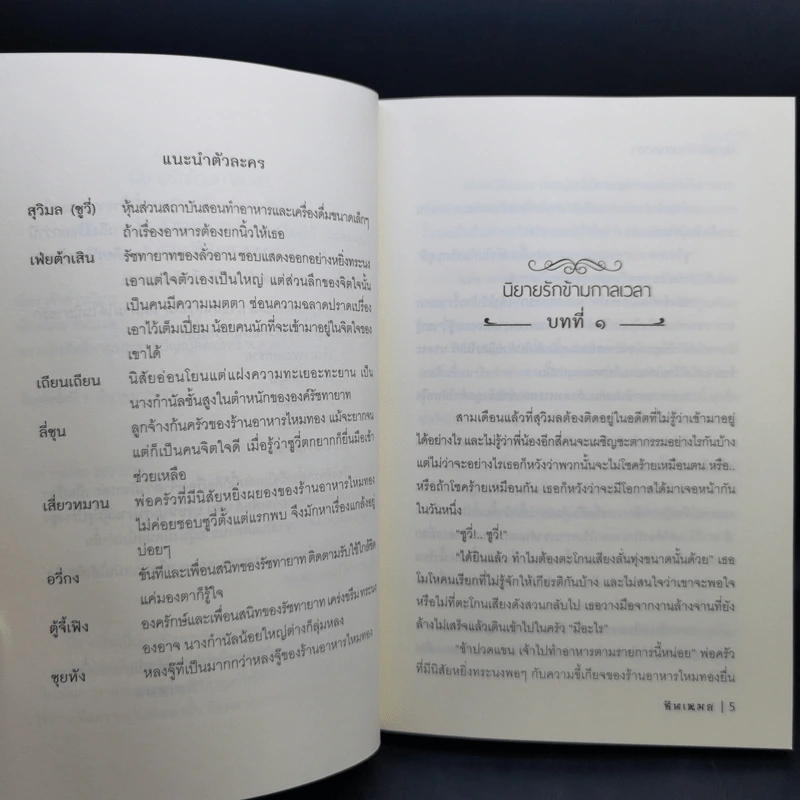 แนะนำตัวละคร
สุวิมล (ซูวี่) หุ้นส่วนสถาบันสอนทำอาหารและเครื่องดื่มขนาดเล็กๆ
ถ้าเรื่องอาหารต้องยกนิ้วให้เธอ
เฟ่ยต้าเสิน รัชทายาทของลั่วอาน ชอบแสดงออกอย่างหยิ่งทระนง
เอาแต่ใจตัวเองเป็นใหญ่ แต่ส่วนลึกของจิตใจนั้น
เป็นคนมีความเมตตา ซ่อนความฉลาดปราดเปรื่อง
เอาไว้เต็มเปี่ยม น้อยคนนักที่จะเข้ามาอยู่ในจิตใจของ
เขาได้
เถียนเถียน นิสัยอ่อนโยนแต่แฝงความทะเยอะทะยาน เป็น
นางกำนัลชั้นสูงในตำหนักขององค์รัชทายาท
ลี่ซุน ลูกจ้างก้นครัวของร้านอาหารไหมทอง แม้จะยากจน
แต่ก็เป็นคนจิตใจดี เมื่อรู้ว่าซูวี่ตกยากก็ยื่นมือเข้า
ช่วยเหลือ
เสี่ยวหมาน พ่อครัวที่มีนิสัยหยิ่งผยองของร้านอาหารไหมทอง
ไม่ค่อยชอบซูวี่ตั้งแต่แรกพบ จึงมักหาเรื่องแกล้งอยู่
บ่อยๆ
อวี่กง ขันทีและเพื่อนสนิทของรัชทายาท ติดตามรับใช้ใกล้ชิด
แค่มองตาก็รู้ใจ
ตู้จี้เฟิง องครักษ์และเพื่อนสนิทของรัชทายาท เคร่งขรึม ทระนง
องอาจ นางกำนัลน้อยใหญ่ต่างก็ลุ่มหลง
ซุยทัง หลงจู๊ที่เป็นมากกว่าหลงจู๊ของร้านอาหารไหมทอง
นิยายรักข้ามกาลเวลา
บทที่ ๑
สามเดือนแล้วที่สุวิมลต้องติดอยู่ในอดีตที่ไม่รู้ว่าเข้ามาอยู่
ได้อย่างไร และไม่รู้ว่าพี่น้องอีกสี่คนจะเผชิญชะตากรรมอย่างไรกันบ้าง
แต่ไม่ว่าจะอย่างไรเธอก็หวังว่าพวกนั้นจะไม่โชคร้ายเหมือนตน หรือ..
หรือถ้าโชคร้ายเหมือนกัน เธอก็หวังว่าจะมีโอกาสได้มาเจอหน้ากัน
ในวันหนึ่ง
"ซูวี่!.. ซูวี่!"
"ได้ยินแล้ว ทำไมต้องตะโกนเสียงลั่นทุ่งขนาดนั้นด้วย" เธอ
โมโหคนเรียกที่ไม่รู้จักให้เกียรติกันบ้าง และไม่สนใจว่าเขาจะพอใจ
หรือไม่ที่ตะโกนเสียงดังสวนกลับไป เธอวางมือจากงานล้างจานที่ยัง
ล้างไม่เสร็จแล้วเดินเข้าไปในครัว "มีอะไร"
"ข้าปวดแขน เจ้าไปทำอาหารตามรายการนี้หน่อย" พ่อครัว
ที่มีนิสัยหยิ่งทระนงพอๆ กับความขี้เกียจของร้านอาหารไหมทองยื่น
| 5